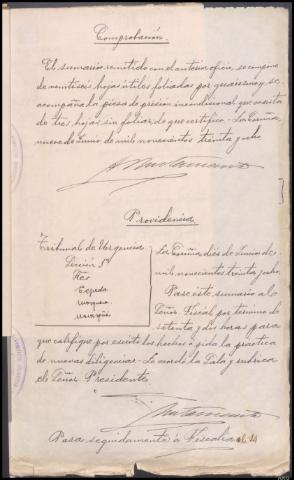 Comprobación.
El sumario remitido con el anterior oficio, se compone
de veintiseis hojas útiles foliadas por guarismo y se
acompaña la pieza de prision incondicional que consta
de tres hojas sin foliar, de que certifico. La Coruña
nueve de Junio de mil novecientos treinta y ocho
Providencia
Tribunal de Urgencia
Sección 1ª
Sres
Cejada
La Coruña diez de Junio de
mil novecientos treinta y ocho
Pase este sumario al
Señor Fiscal por termino de
setenta y dos horas para
que califique por escrito los hechos o pida la practica
de nuevas diligencias. Lo acordó la Sala y rubrica
el Señor Presidente
Pasa seguidamente á Fiscalia